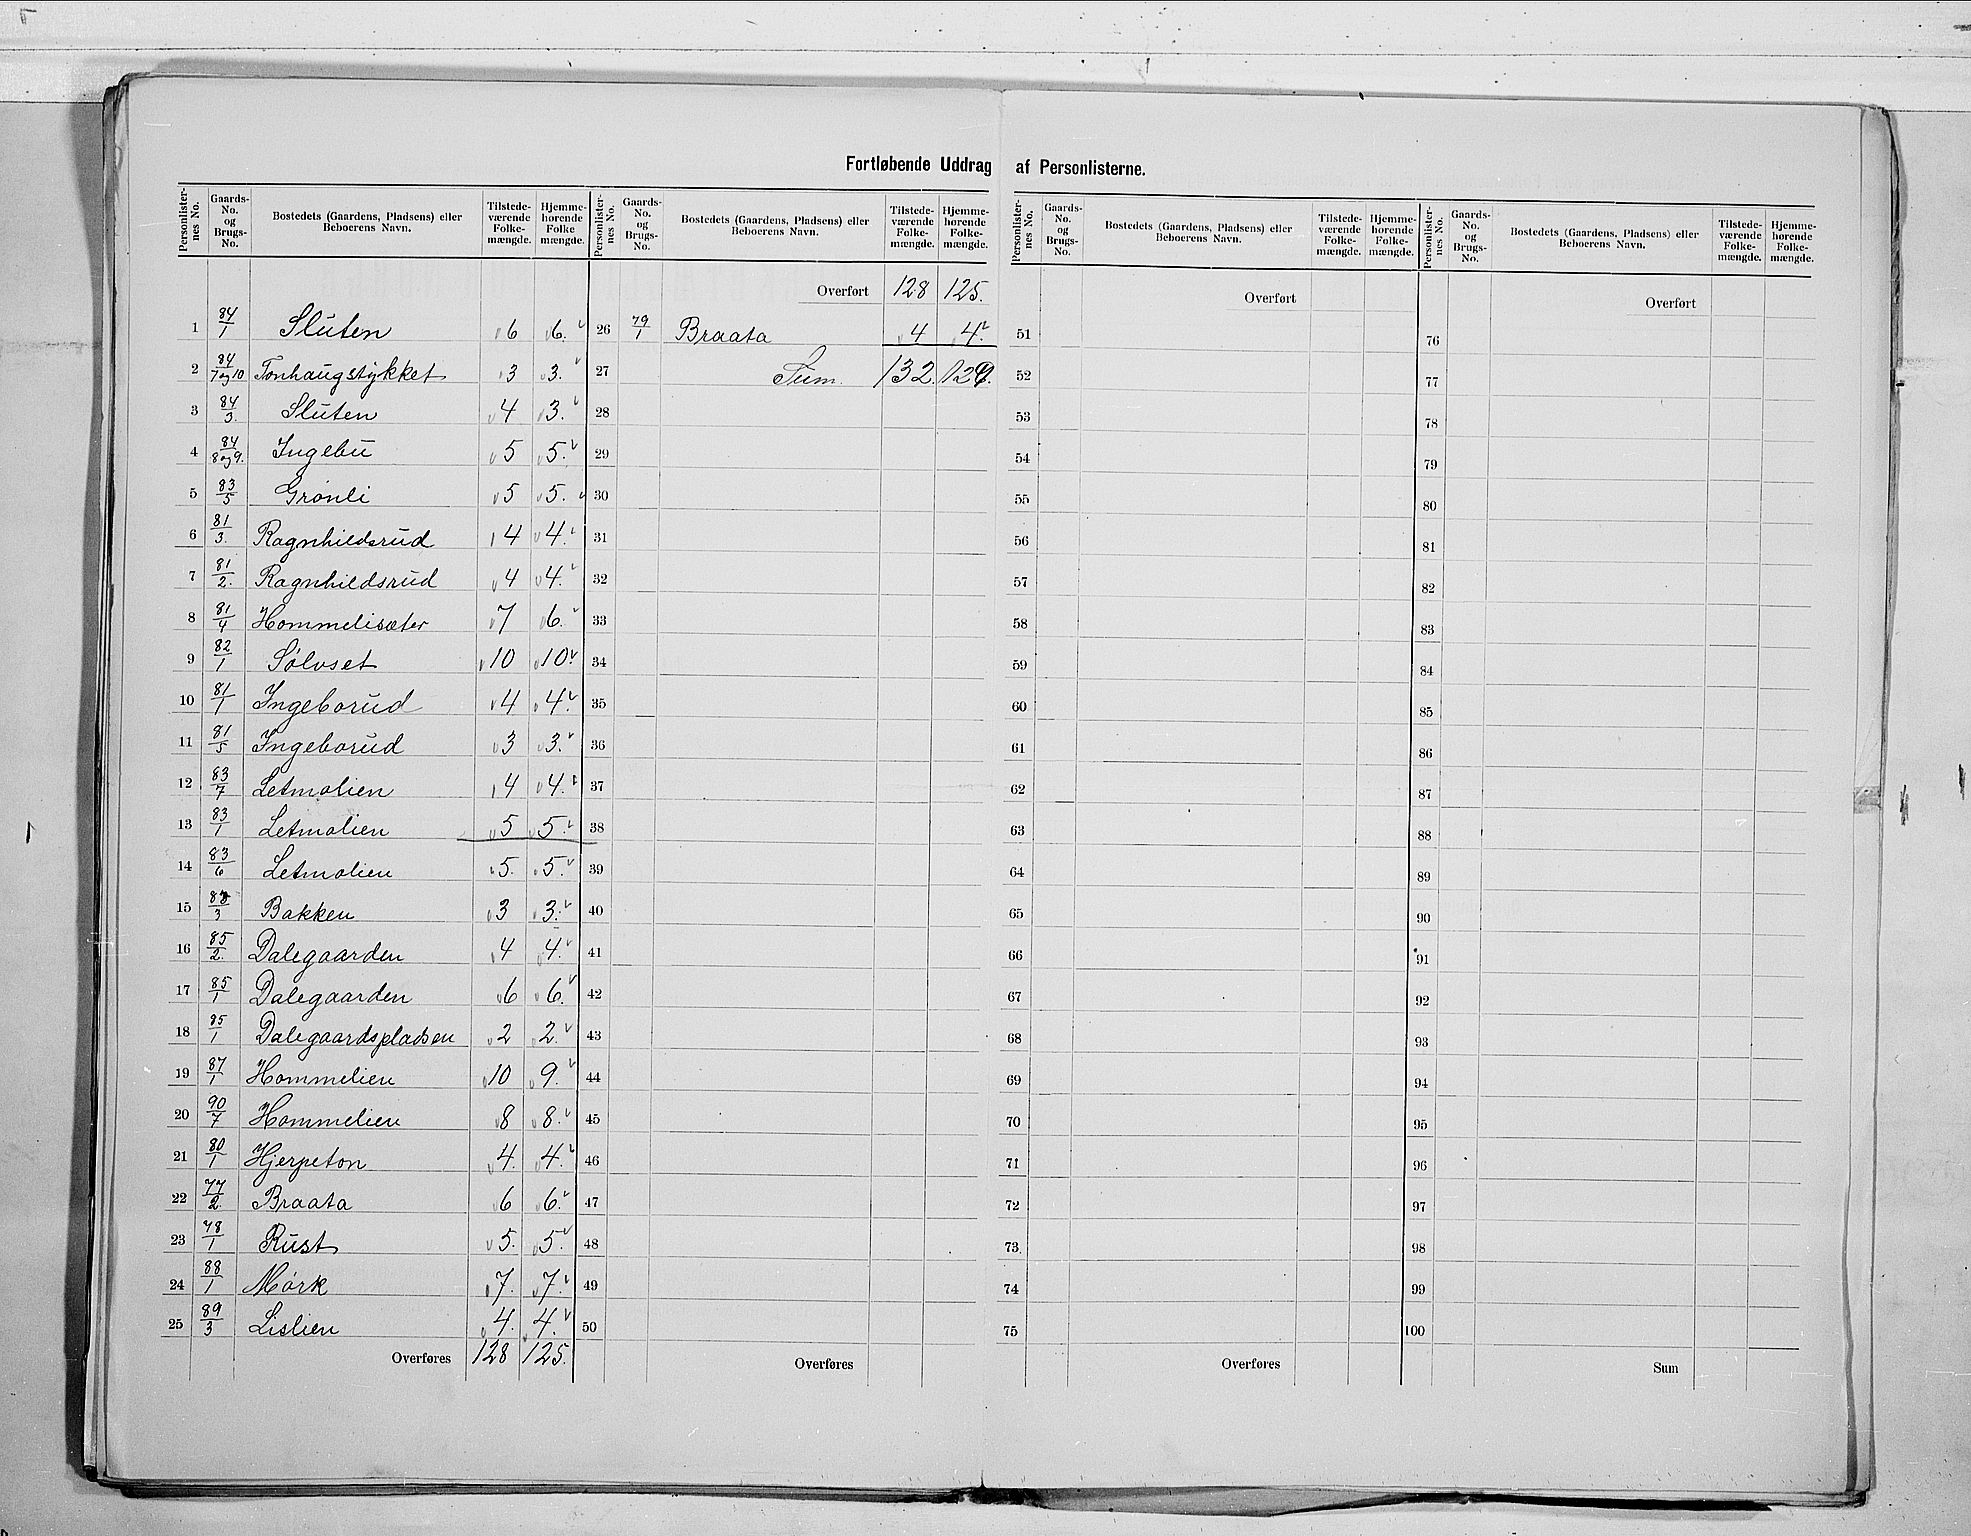 Fortløbende Uddrag af Personlisterne.
Personlister-nes No. | Gaards-No. og Brugs-No. | Bostedets (Gaardens, Pladsens) eller Beboerens Navn. | Tilstede-værende Folke-mængde. | Hjemme-hørende Folke-mængde. | Personlister-nes No. | Gaards-No. og Brugs-No. | Bostedets (Gaardens, Pladsens) eller Beboerens Navn. | Tilstede-værende Folke-mængde. | Hjemme-hørende Folke-mængde. | Personlister-nes No. | Gaards-No. og Brugs-No. | Bostedets (Gaardens, Pladsens) eller Beboerens Navn. | Tilstede-værende Folke-mængde. | Hjemme-hørende Folke-mængde. | Personlister-nes No. | Gaards-No. og Brugs-No. | Bostedets (Gaardens, Pladsens) eller Beboerens Navn. | Tilstede-værende Folke-mængde. | Hjemme-hørende Folke-mængde.
Overført 128 125. Overført Overført
1 84/1 Sluten 6 6. 26 79/1 Braata 4 4. 51 76
2 84/7 og 10 Tonhaugstykket 3 3. 27 Sum. 132. 129. 52 77
3 84/3. Sluten 4 3. 28 53 78
4 84/8 og 9. Ingebu 5 5. 29 54 79
5 83/5 Grønli 5 5. 30 55 80
6 81/3. Ragnhildsrud 4 4. 31 56 81
7 81/2. Ragnhildsrud 4 4. 32 57 82
8 81/4 Hommelisæter 7 6. 33 58 83
9 82/1 Sølvset 10 10. 34 59 84
10 81/1 Ingeborud 4 4. 35 60 85
11 81/5 Ingeborud 3 3. 36 61 86
12 83/7 Letmolien 4 4. 37 62 87
13 83/1 Letmolien 5 5. 38 63 88
14 83/6 Letmolien 5. 5. 39 64 89
15 Bakken 3 3. 40 65 90
16 85/2. Dalegaarden 4 4. 41 66 91
17 85/1 Dalegaarden 6 6. 42 67 92
18 85/1 Dalegaardspladsen 2 2. 43 68 93
19 87/1 Hommelien 10 9. 44 69 94
20 90/7 Hommelien 8 8. 45 70 95
21 80/1 Hjerpeton 4. 4. 46 71 96
22 77/2. Braata 6 6. 47 72 97
23 78/1 Rust 5. 5. 48 73 98
24 88/1 Mørk 7. 7. 49 74 99
25 89/3 Lislien 4. 4. 50 75 100
Overføres 128 125. Overføres Overføres Sum